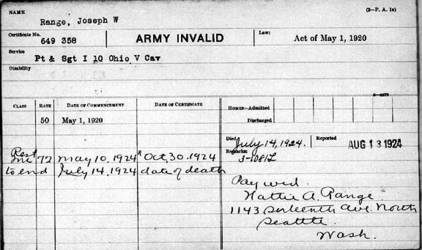 NAME
Range, Joseph W
(3-P. A. 1a)
Certificate No.
649 358
ARMY INVALID
Law:
Act of May 1, 1920
Service
Pt & Sgt I 10 Ohio V Cav
Disability
CLASS
RATE
DATE OF COMMENCEMENT
DATE OF CERTIFICATE
HOMES—Admitted
Discharged
50 May 1, 1920
Died July 14, 1924. Reported AUG 13 1924
Remarks:
72 May 10, 1924 Oct. 30, 1924
to end July 14, 1924 date of death
Pay wid.
Hattie A. Range
1143 Sixteenth Ave. North
Seattle
Wash.